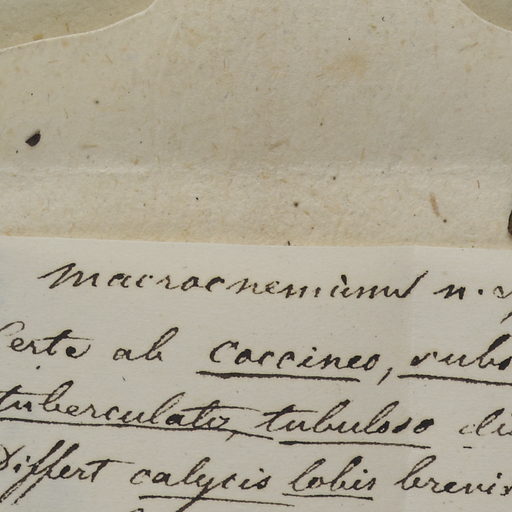 Macrocnemum n.
Certe ab coccineo, rubs
tuberculato, tubuloso di
Differt calycis lobis brevi